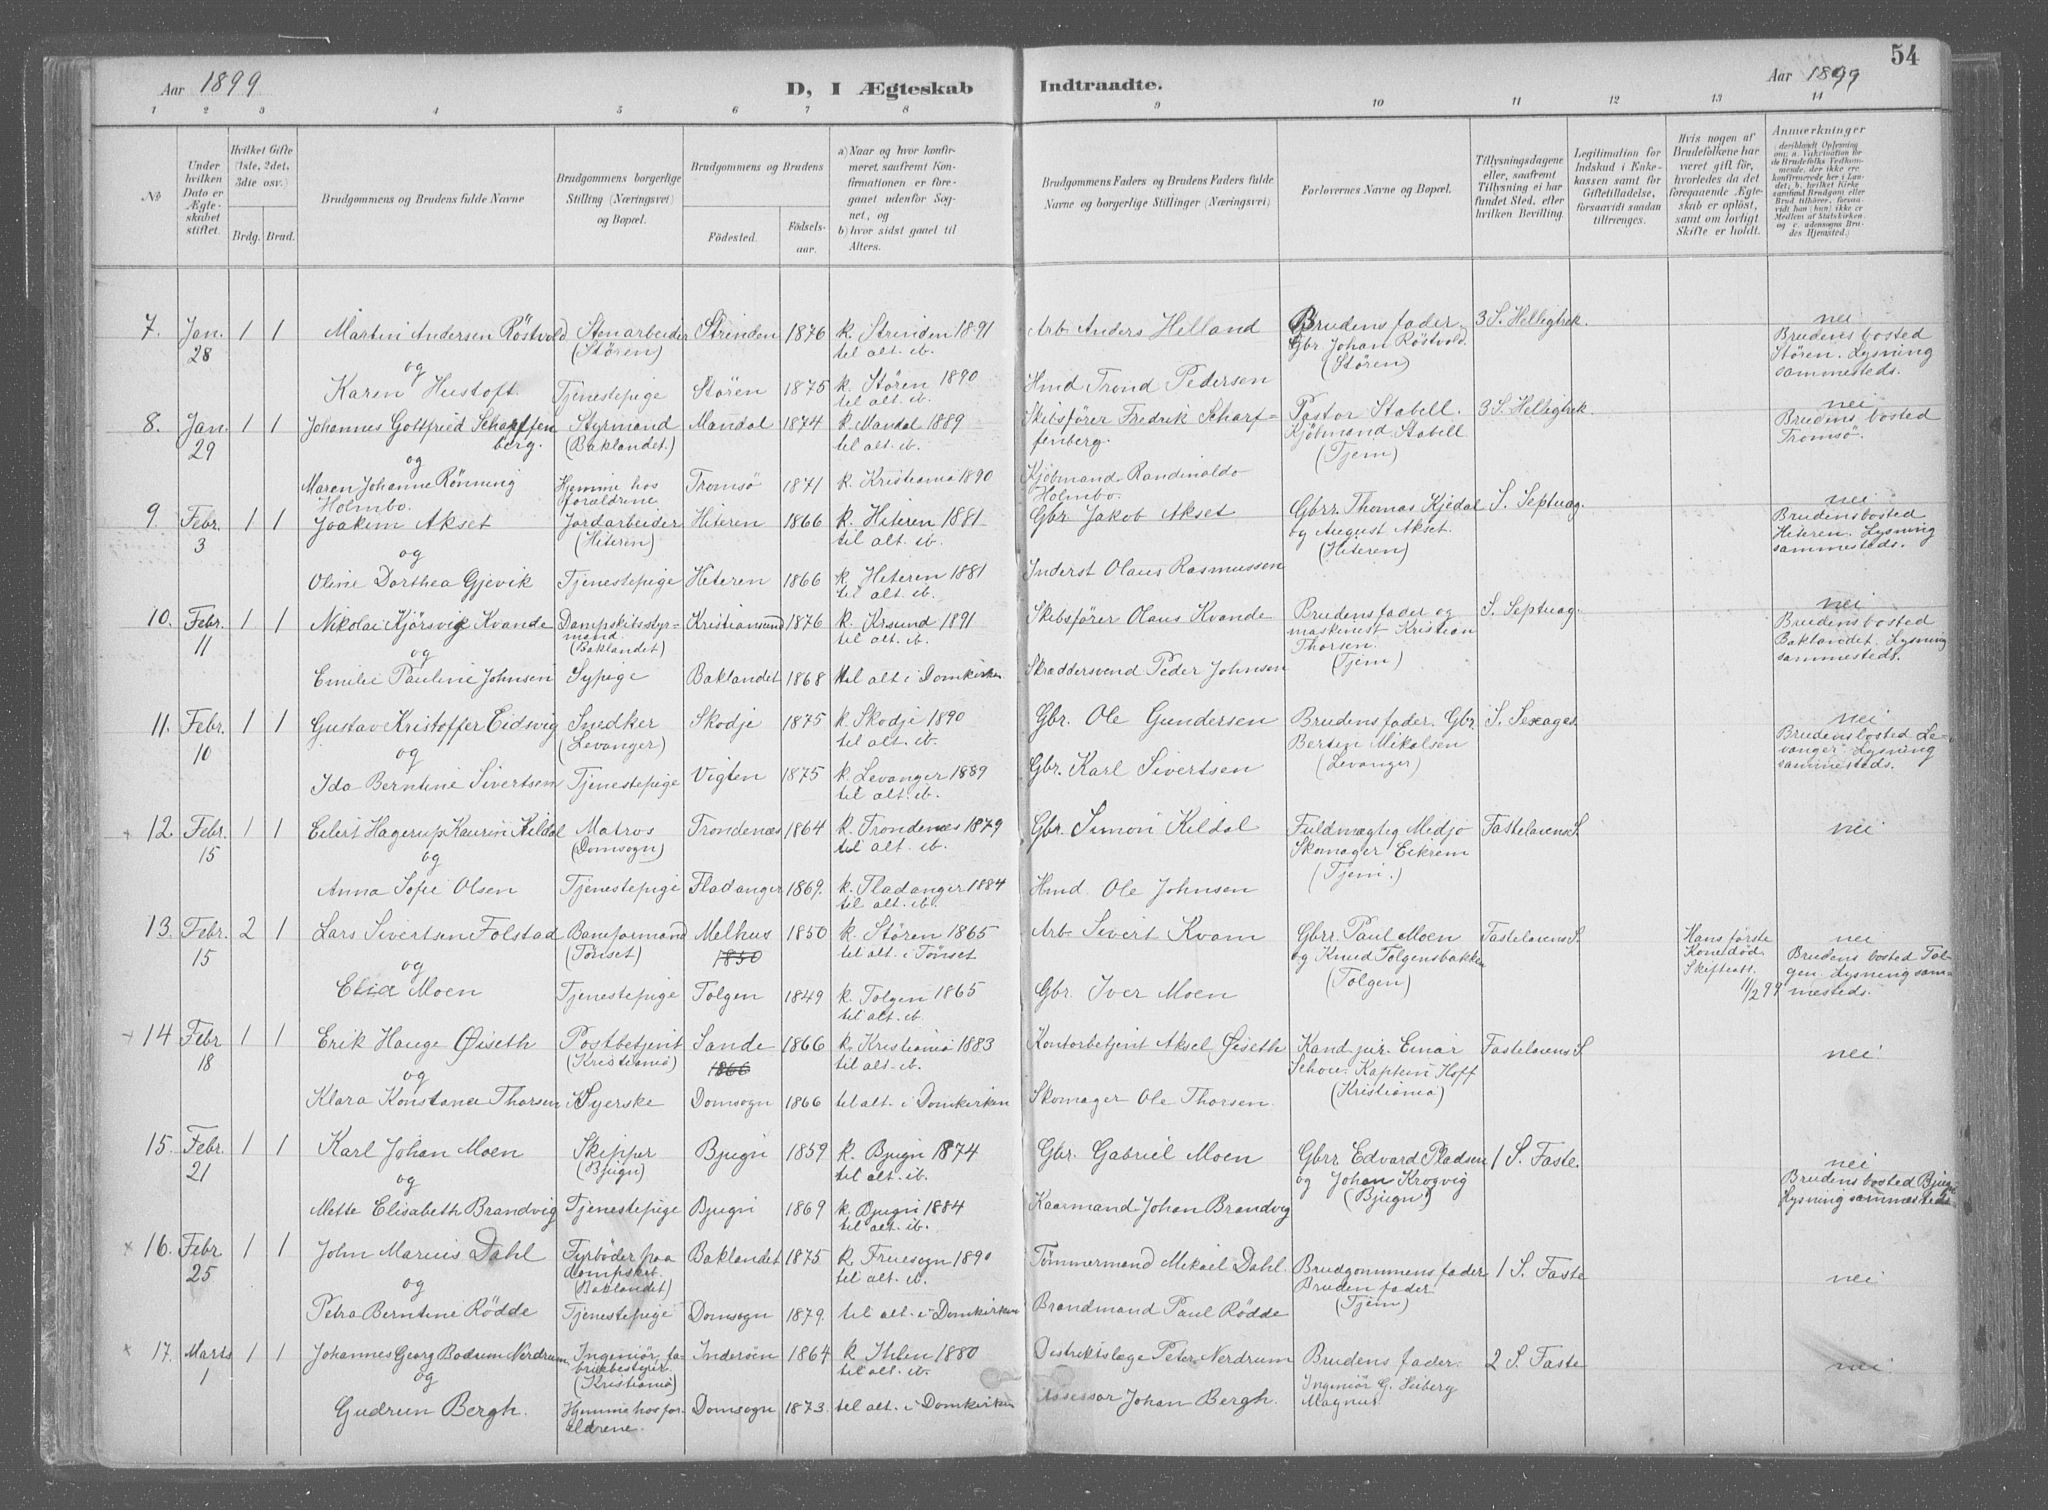 54
Aar 1899
D, I Ægteskab Indtraadte.
Aar 1899
1 2 3 4 5 6 7 8 9 10 11 12 13 14
№
Under hvilken Dato er Ægteskabet stiftet.
Hvilket Gifte (1ste, 2det, 3die osv.)
Brdg. Brud.
Brudgommens og Brudens fulde Navne
Brudgommens borgerlige Stilling (Næringsvei) og Bopæl.
Brudgommens og Brudens
Födested. Födselsaar.
a) Naar og hvor konfirmeret, saafremt Konfirmationen er foregaaet udenfor Sognet, og
b) hvor sidst gaaet til Alters.
Brudgommens Faders og Brudens Faders fulde Navne og borgerlige Stillinger (Næringsvei)
Forlovernes Navne og Bopæl.
Tillysningsdagene eller, saafremt Tillysning ei har fundet Sted, efter hvilken Bevilling.
Legitimation for Indskud i Enkekassen samt for Giftetilladelse, forsaavidt saadan tiltrænges.
Hvis nogen af Brudefolkene har været gift för, hvorledes da det foregaaende Ægteskab er oplöst, samt om lovligt Skifte er holdt.
Anmerkninger
7. Jan. 28 1 1 Martin Andersen Röstvold Stenarbeider (Stören) Strinden 1876 k. Strinden 1891 til alt. ib. Arb. Anders Helland Brudens fader, Gbr. Johan Röstvold. (Stören) 3 S. Helligtrek. nei Brudens bosted Stören. Lysning sammesteds.
og
Karen Hustoft. Tjenestepige Stören 1875 k. Stören 1890 til alt. ib. Hmd Trond Pedersen
8. Jan. 29 1 1 Johannes Gottfried Scharffenberg. Styrmand (Baklandet.) Mandal 1874 k. Mandal 1889 til alt. ib. Skibsförer Fredrik Scharffenberg. Pastor Stabell. Kjöbmand Stabell (Tjem) 3 S. Helligtrek. nei Brudens bosted Tromsö.
og
Maren Johanne Rönning Holmbo. Hjemme hos forældrene Tromsö 1871 k. Kristiania 1890 Kjöbmand Randinaldo Holmbo.
9. Febr. 3 1 1 Joakim Akset Jordarbeider (Hiteren) Hiteren 1866 k. Hiteren 1881 til alt. ib. Gbr. Jakob Akset Gbrr. Thomas Kjedal og August Akset. (Hiteren) S. Septuag. nei Brudens bosted Hiteren. Lysning sammesteds.
og
Oline Dorthea Gjevik Tjenestepige Hiteren 1866 k. Hiteren 1881 til alt. ib. Inderst Olaus Rasmussen
10. Febr. 11 1 1 Nikolai Kjörsvig Kvande Dampskibsstyrmand. (Baklandet) Kristiansund 1876 k. Krsund 1891 til alt. ib. Skibsförer Olaus Kvande Brudens fader og maskinist Kristian Thorsen. (Tjem) S. Septuag. nei Brudens bosted Baklandet. Lysning sammesteds.
og
Emilie Pauline Johnsen Sypige Baklandet 1868 til alt i Domkirken Skræddersvend Peder Johnsen
11. Febr. 10 1 1 Gustav Kristoffer Eidsvig Snedker (Levanger) Skodje 1875 k. Skodje 1890 til alt. ib. Gbr. Ole Gundersen Brudens fader. Gbr. Bertin Mikalsen (Levanger) S. Sexages. nei Brudens bosted Levanger. Lysning sammesteds.
og
Ida Berntine Sivertsen Tjenestepige Vigten 1875 k. Levanger 1889 til alt. ib. Gbr. Karl Sivertsen
12. Febr. 15 1 1 Eilert Hagerup Kaurin Kildal Matros (Domsogn) Trondenæs 1864 k. Trondenæs 1879 til alt. ib. Gbr. Simon Kildal Fuldmægtig Medjo Skomager Eikrem (Tjem.) Fastelavens S. nei
og
Anna Sofie Olsen Tjenestepige Fladanger 1869. k. Fladanger 1884 til alt. ib. Hmd. Ole Johnsen
13. Febr. 15 2 1 Lars Sivertsen Folstad Baneformand (Tönset) Melhus 1850 1850 k. Stören 1865 til alt. i Tönset Arb. Sivert Kvam Gbrr. Paul Moen og Knud Tolgensbakken (Tolgen) Fastelavens S. Hans förste Kone död. Skifteatt. 11/2 99 nei Brudens bosted Tolgen. Lysning sammesteds.
og
Elia Moen Tjenestepige Tolgen 1849 k. Tolgen 1865 til alt. ib. Gbr. Iver Moen
14 Febr 18 1 1 Erik Hauge Øiseth Postbetjent (Kristiania) Sande 1866 1866 k. Kristiania 1883 til alt. ib. Kontorbetjent Aksel Øiseth Kand. jur. Einar Schou. Kaptein Hoff (Kristiania) Fastelavens S nei.
og
Klara Konstance Thorsen Syerske Domsogn 1866 til alt. i Domkirken Skomager Ole Thorsen.
15. Febr. 21 1 1 Karl Johan Moen Skipper (Bjugn) Bjugn 1859 k. Bjugn 1874 til alt. ib. Gbr. Gabriel Moen Gbrr. Edvard Pladsen og Johan Krogvig (Bjugn) 1 S. Faste. nei Brudens bosted Bjugn Lysning sammesteds
og
Mette Elisabeth Brandvig Tjenestepige Bjugn 1869 k. Bjugn 1884 til alt. ib. Kaarmand Johan Brandvig
16. Febr 25 1 1 John Marius Dahl Fyrböder paa dampskib. (Baklandet) Baklandet 1875 k. Fruesogn 1890 til alt. ib. Tömmermand Mikael Dahl. Brudgommens fader Bruden fader (Tjem) 1 S. Faste nei
og
Petra Berntine Rödde Tjenestepige Domsogn 1879. til alt. i Domkirken Brandmand Paul Rödde
17. Marts 1 1 1 Johannes Georg Bodum Nerdrum. Ingeniör, fabrikbestyrer (Kristiania) Inderöen 1864 k. Ihlen 1880 til alt. ib. Distriktslæge Peter Nerdrum Brudens fader. Ingeniör G. Heiberg Magnus. 2 S. Faste nei
og
Gudrun Bergh. Hjemme hos forældrene. Domsogn 1873. til alt. i Domkirken Assessor Johan Bergh.